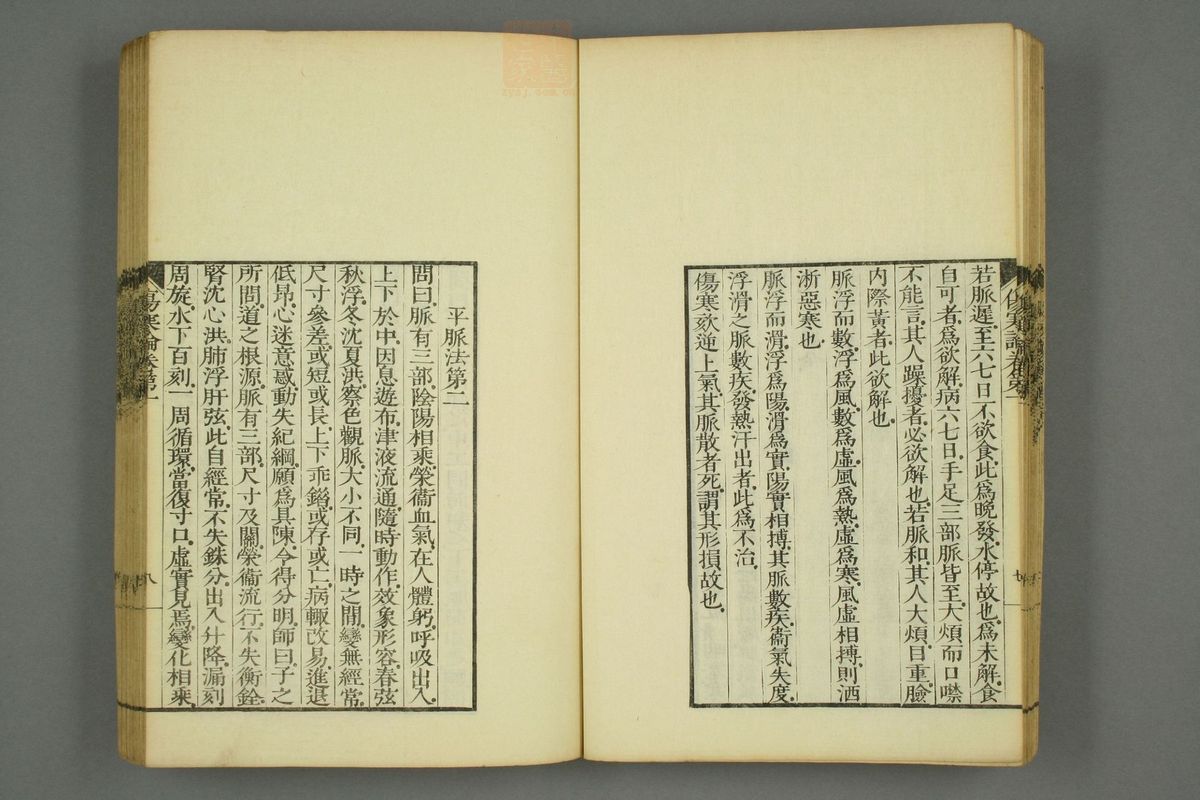 若脈遲至六七日不欲食此爲晚發水停故也爲未解食
自可者爲欲解病六七日手足三部脈皆至大煩而口噤
不能言其人躁擾者必欲解也若脈和其人大煩目重臉
內際黃者此欲解也
脈浮而數浮爲風數爲虛風爲熱虛爲寒風虛相搏則洒
淅惡寒也
脈浮而滑浮爲陽滑爲實陽實相搏其脈數疾衞氣失度
浮滑之脈數疾發熱汗出者此爲不治
傷寒欬逆上氣其脈散者死謂其形損故也
平脈法第二
問曰脈有三部陰陽相乘榮衞血氣在人體躬呼吸出入
上下於中因息遊布津液流通隨時動作效象形容春弦
秋浮冬沈夏洪察色觀脈大小不同一時之閒變無經常
尺寸參差或短或長上下乖錯或存或亡病輒改易進退
低昂心迷意惑動失紀綱願爲具陳令得分明師曰子之
所問道之根源脈有三部尺寸及關榮衞流行不失衡銓
腎沈心洪肺浮肝弦此自經常不失銖分出入升降漏刻
周旋水下百刻一周循環當復寸口虛實見焉變化相乘
傷寒論卷第一
八